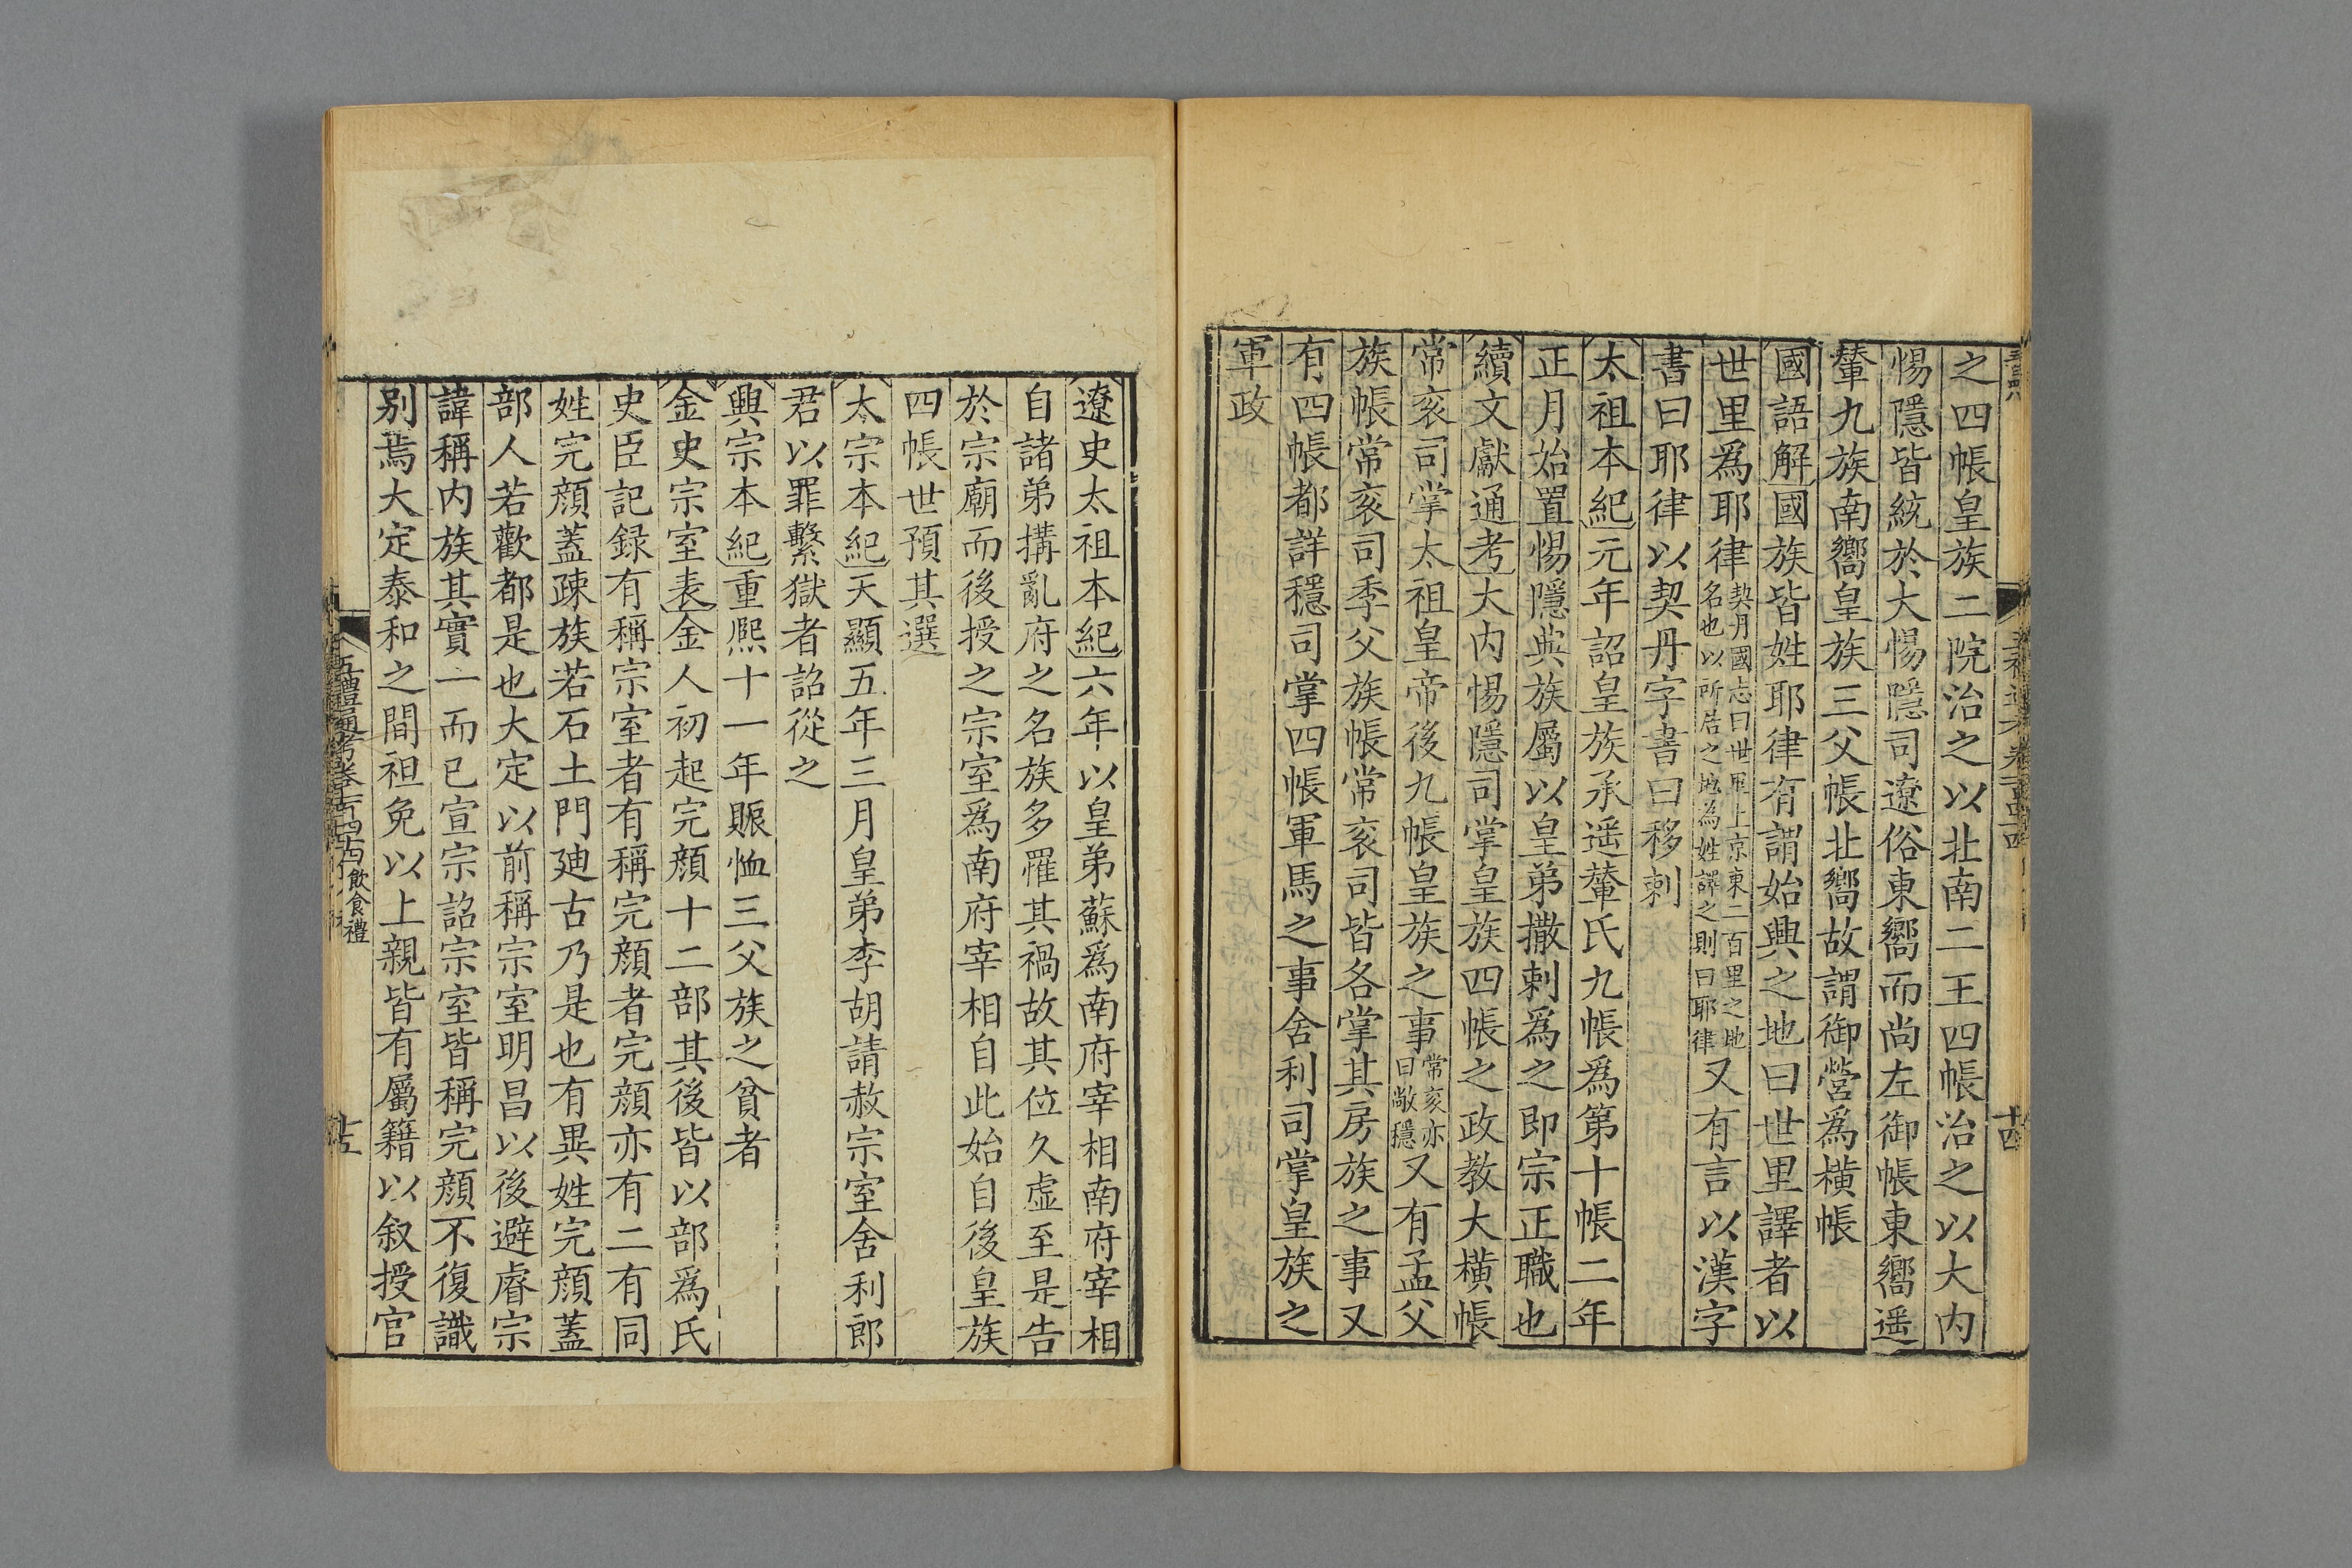 之四帳皇族二院治之以北南二王四帳治之以大内
惕隱皆統於大惕隱司遼俗東嚮而尚左御帳東嚮遥
輦九族南嚮皇族三父帳北嚮故謂御營爲横帳
國語解國族皆姓耶律有謂始興之地曰世里譯者以
世里爲耶律契丹國志曰世里上京東二百里之地名也以所居之地為姓譯之則曰耶律又有言以漢字
書曰耶律以契丹字書曰移剌
太祖本紀元年詔皇族承遥輦氏九帳爲第十帳二年
正月始置惕隱典族屬以皇弟撒剌爲之即宗正職也
續文獻通考大内惕隱司掌皇族四帳之政教大横帳
常衮司掌太祖皇帝後九帳皇族之事常衮亦曰敞穩又有孟父
族帳常衮司季父族帳常衮司皆各掌其房族之事又
有四帳都詳穩司掌四帳軍馬之事舍利司掌皇族之
軍政
十四
遼史太祖本紀六年以皇弟蘇爲南府宰相南府宰相
自諸弟搆亂府之名族多罹其禍故其位久虛至是告
於宗廟而後授之宗室爲南府宰相自此始自後皇族
四帳世預其選
太宗本紀天顯五年三月皇弟李胡請赦宗室舍利郎
君以罪繫獄者詔從之
興宗本紀重熙十一年賑恤三父族之貧者
金史宗室表金人初起完顔十二部其後皆以部爲氏
史臣記録有稱宗室者有稱完顔者完顔亦有二有同
姓完顔蓋疎族若石土門廸古乃是也有異姓完顔蓋
部人若歡都是也大定以前稱宗室明昌以後避睿宗
諱稱内族其實一而已宣宗詔宗室皆稱完顔不復識
别焉大定泰和之間祖免以上親皆有屬籍以叙授官
五禮通考卷一百四十四 飲食禮